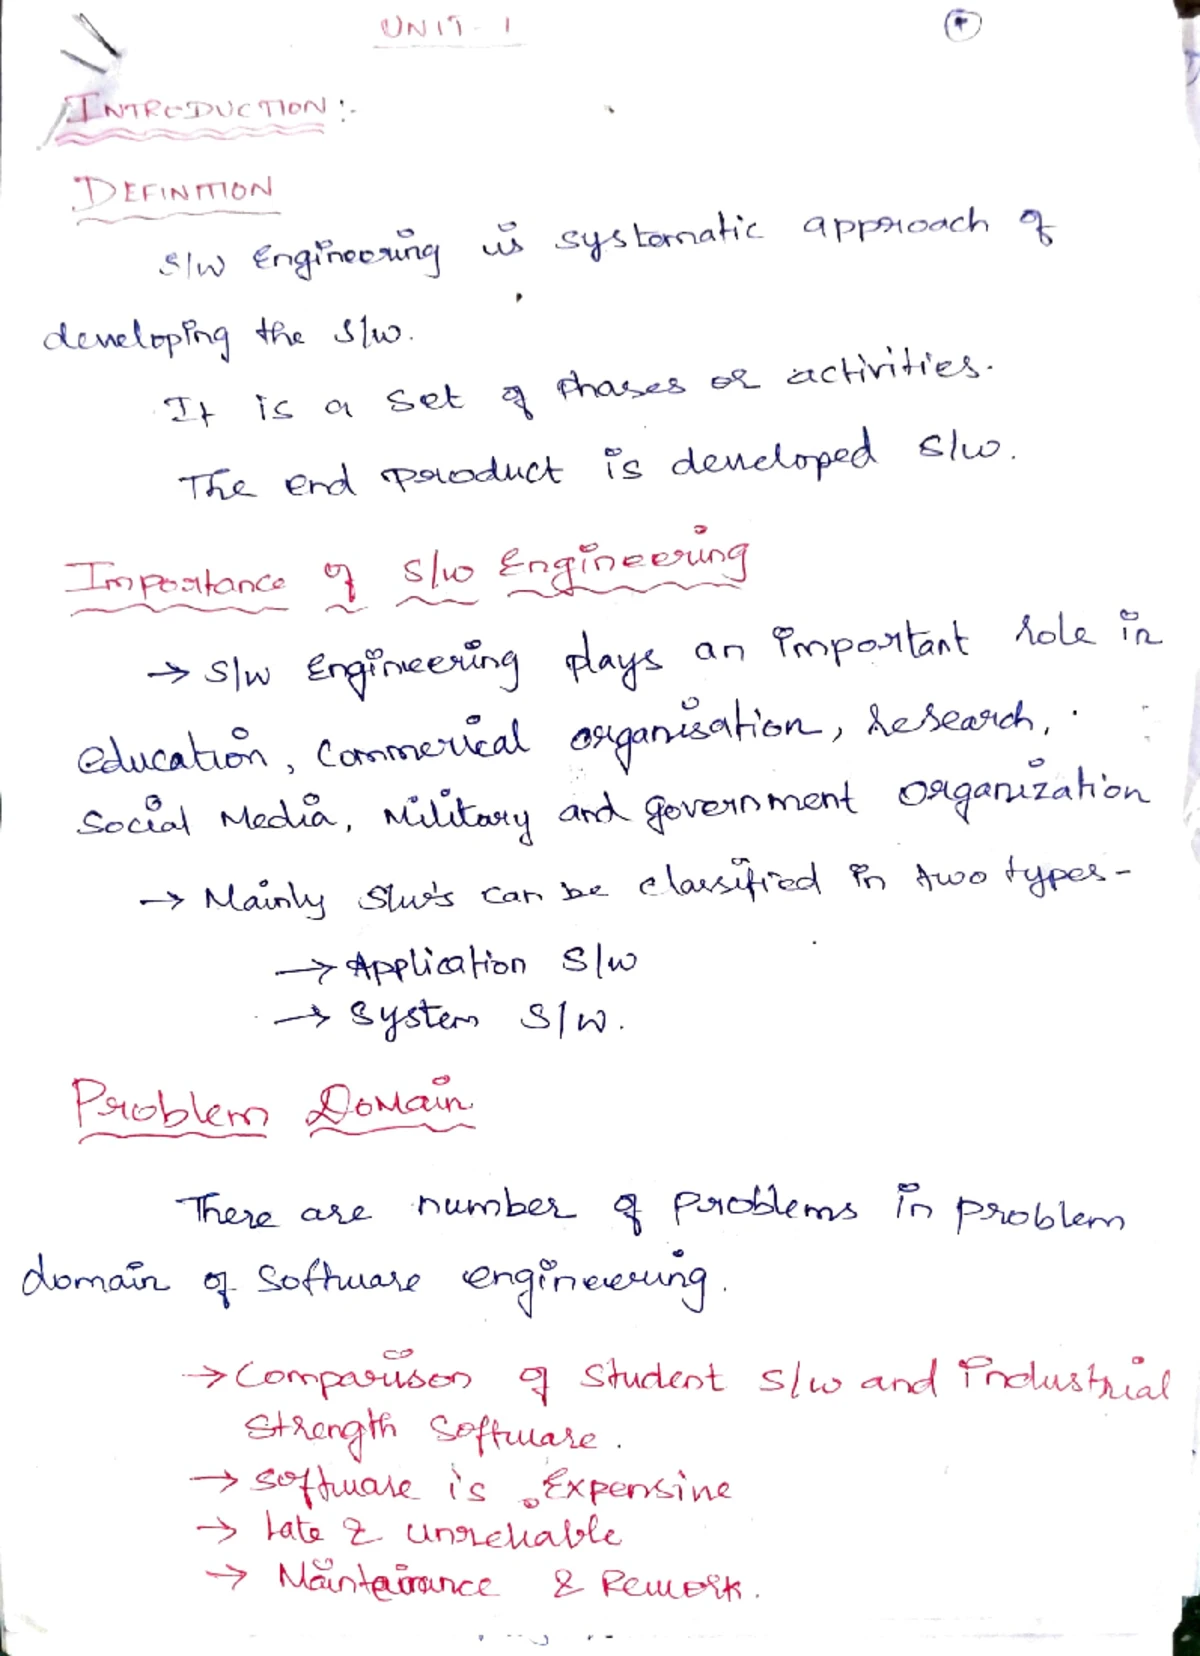 UNIT - 1
INTRODUCTION :-
DEFINITION
S/w Engineering is systematic approach of
developing the S/w.
It is a set of phases or activities.
The end product is developed S/w.
Importance of S/w Engineering
→ S/w Engineering plays an important role in
education, Commerical organisation, research,
Social Media, Military and government organization
→ Mainly S/w's can be classified in two types -
→ Application S/w
→ System S/w.
Problem Domain
There are number of problems in problem
domain of Software engineering.
→ Comparison of Student S/w and industrial
Strength Software.
→ Software is Expensive
→ Late & unreliable
→ Maintenance & Rework.